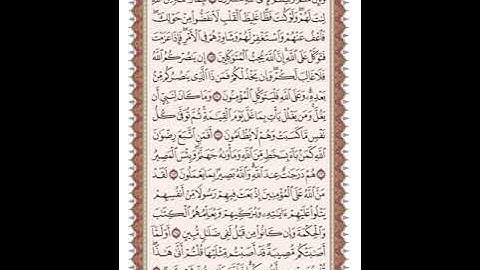 لِنتَ لَهُمْ وَلَوْ كُنتَ فَظًّا غَلِيظَ ٱلْقَلْبِ لَٱنفَضُّوا۟ مِنْ حَوْلِكَ
فَٱعْفُ عَنْهُمْ وَٱسْتَغْفِرْ لَهُمْ وَشَاوِرْهُمْ فِى ٱلْأَمْرِ فَإِذَا عَزَمْتَ
فَتَوَكَّلْ عَلَى ٱللَّهِ إِنَّ ٱللَّهَ يُحِبُّ ٱلْمُتَوَكِّلِينَ ١٥٩ إِن يَنصُرْكُمُ ٱللَّهُ
فَلَا غَالِبَ لَكُمْ وَإِن يَخْذُلْكُمْ فَمَن ذَا ٱلَّذِى يَنصُرُكُم مِّنۢ
بَعْدِهِۦ وَعَلَى ٱللَّهِ فَلْيَتَوَكَّلِ ٱلْمُؤْمِنُونَ ١٦٠ وَمَا كَانَ لِنَبِىٍّ أَن
يَغُلَّ وَمَن يَغْلُلْ يَأْتِ بِمَا غَلَّ يَوْمَ ٱلْقِيَٰمَةِ ثُمَّ تُوَفَّىٰ كُلُّ
نَفْسٍ مَّا كَسَبَتْ وَهُمْ لَا يُظْلَمُونَ ١٦١ أَفَمَنِ ٱتَّبَعَ رِضْوَٰنَ
ٱللَّهِ كَمَنۢ بَآءَ بِسَخَطٍ مِّنَ ٱللَّهِ وَمَأْوَىٰهُ جَهَنَّمُ وَبِئْسَ ٱلْمَصِيرُ
١٦٢ هُمْ دَرَجَٰتٌ عِندَ ٱللَّهِ وَٱللَّهُ بَصِيرٌۢ بِمَا يَعْمَلُونَ ١٦٣ لَقَدْ
مَنَّ ٱللَّهُ عَلَى ٱلْمُؤْمِنِينَ إِذْ بَعَثَ فِيهِمْ رَسُولًا مِّنْ أَنفُسِهِمْ
يَتْلُوا۟ عَلَيْهِمْ ءَايَٰتِهِۦ وَيُزَكِّيهِمْ وَيُعَلِّمُهُمُ ٱلْكِتَٰبَ
وَٱلْحِكْمَةَ وَإِن كَانُوا۟ مِن قَبْلُ لَفِى ضَلَٰلٍ مُّبِينٍ ١٦٤ أَوَلَمَّآ
أَصَٰبَتْكُم مُّصِيبَةٌ قَدْ أَصَبْتُم مِّثْلَيْهَا قُلْتُمْ أَنَّىٰ هَٰذَا